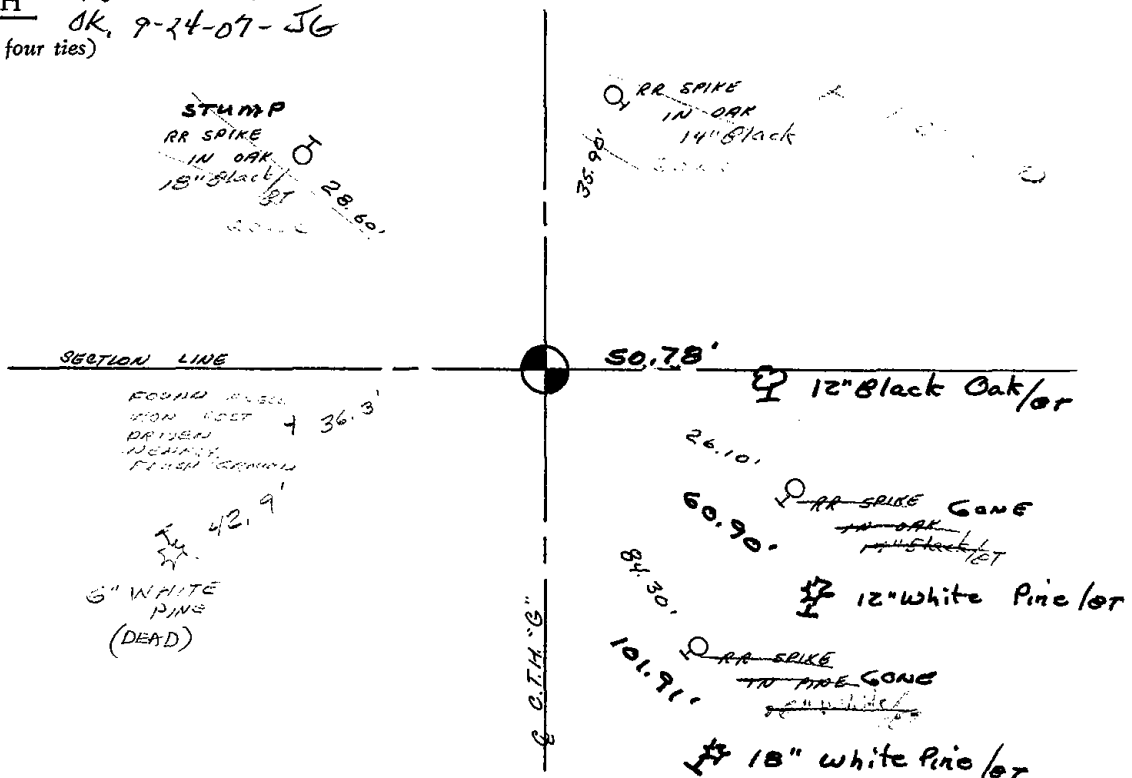 H
OK, 9-24-07-JG
four ties)
STUMP
RR SPIKE
IN OAK
18" Black/
BT
28.60'
RR SPIKE
IN OAK
14" Black
35.90'
SECTION LINE
50.78'
12" Black Oak/BT
FOUND
IRON POST
DRIVEN
NEARLY
FLUSH GROUND
36.3'
42.9'
6" WHITE
PINE
(DEAD)
26.10'
RR SPIKE GONE
IN OAK
Black/BT
60.90'
12" White Pine/BT
84.30'
RR SPIKE
IN PINE GONE
White/
101.91'
18" White Pine/BT
℄ C.T.H. "G"